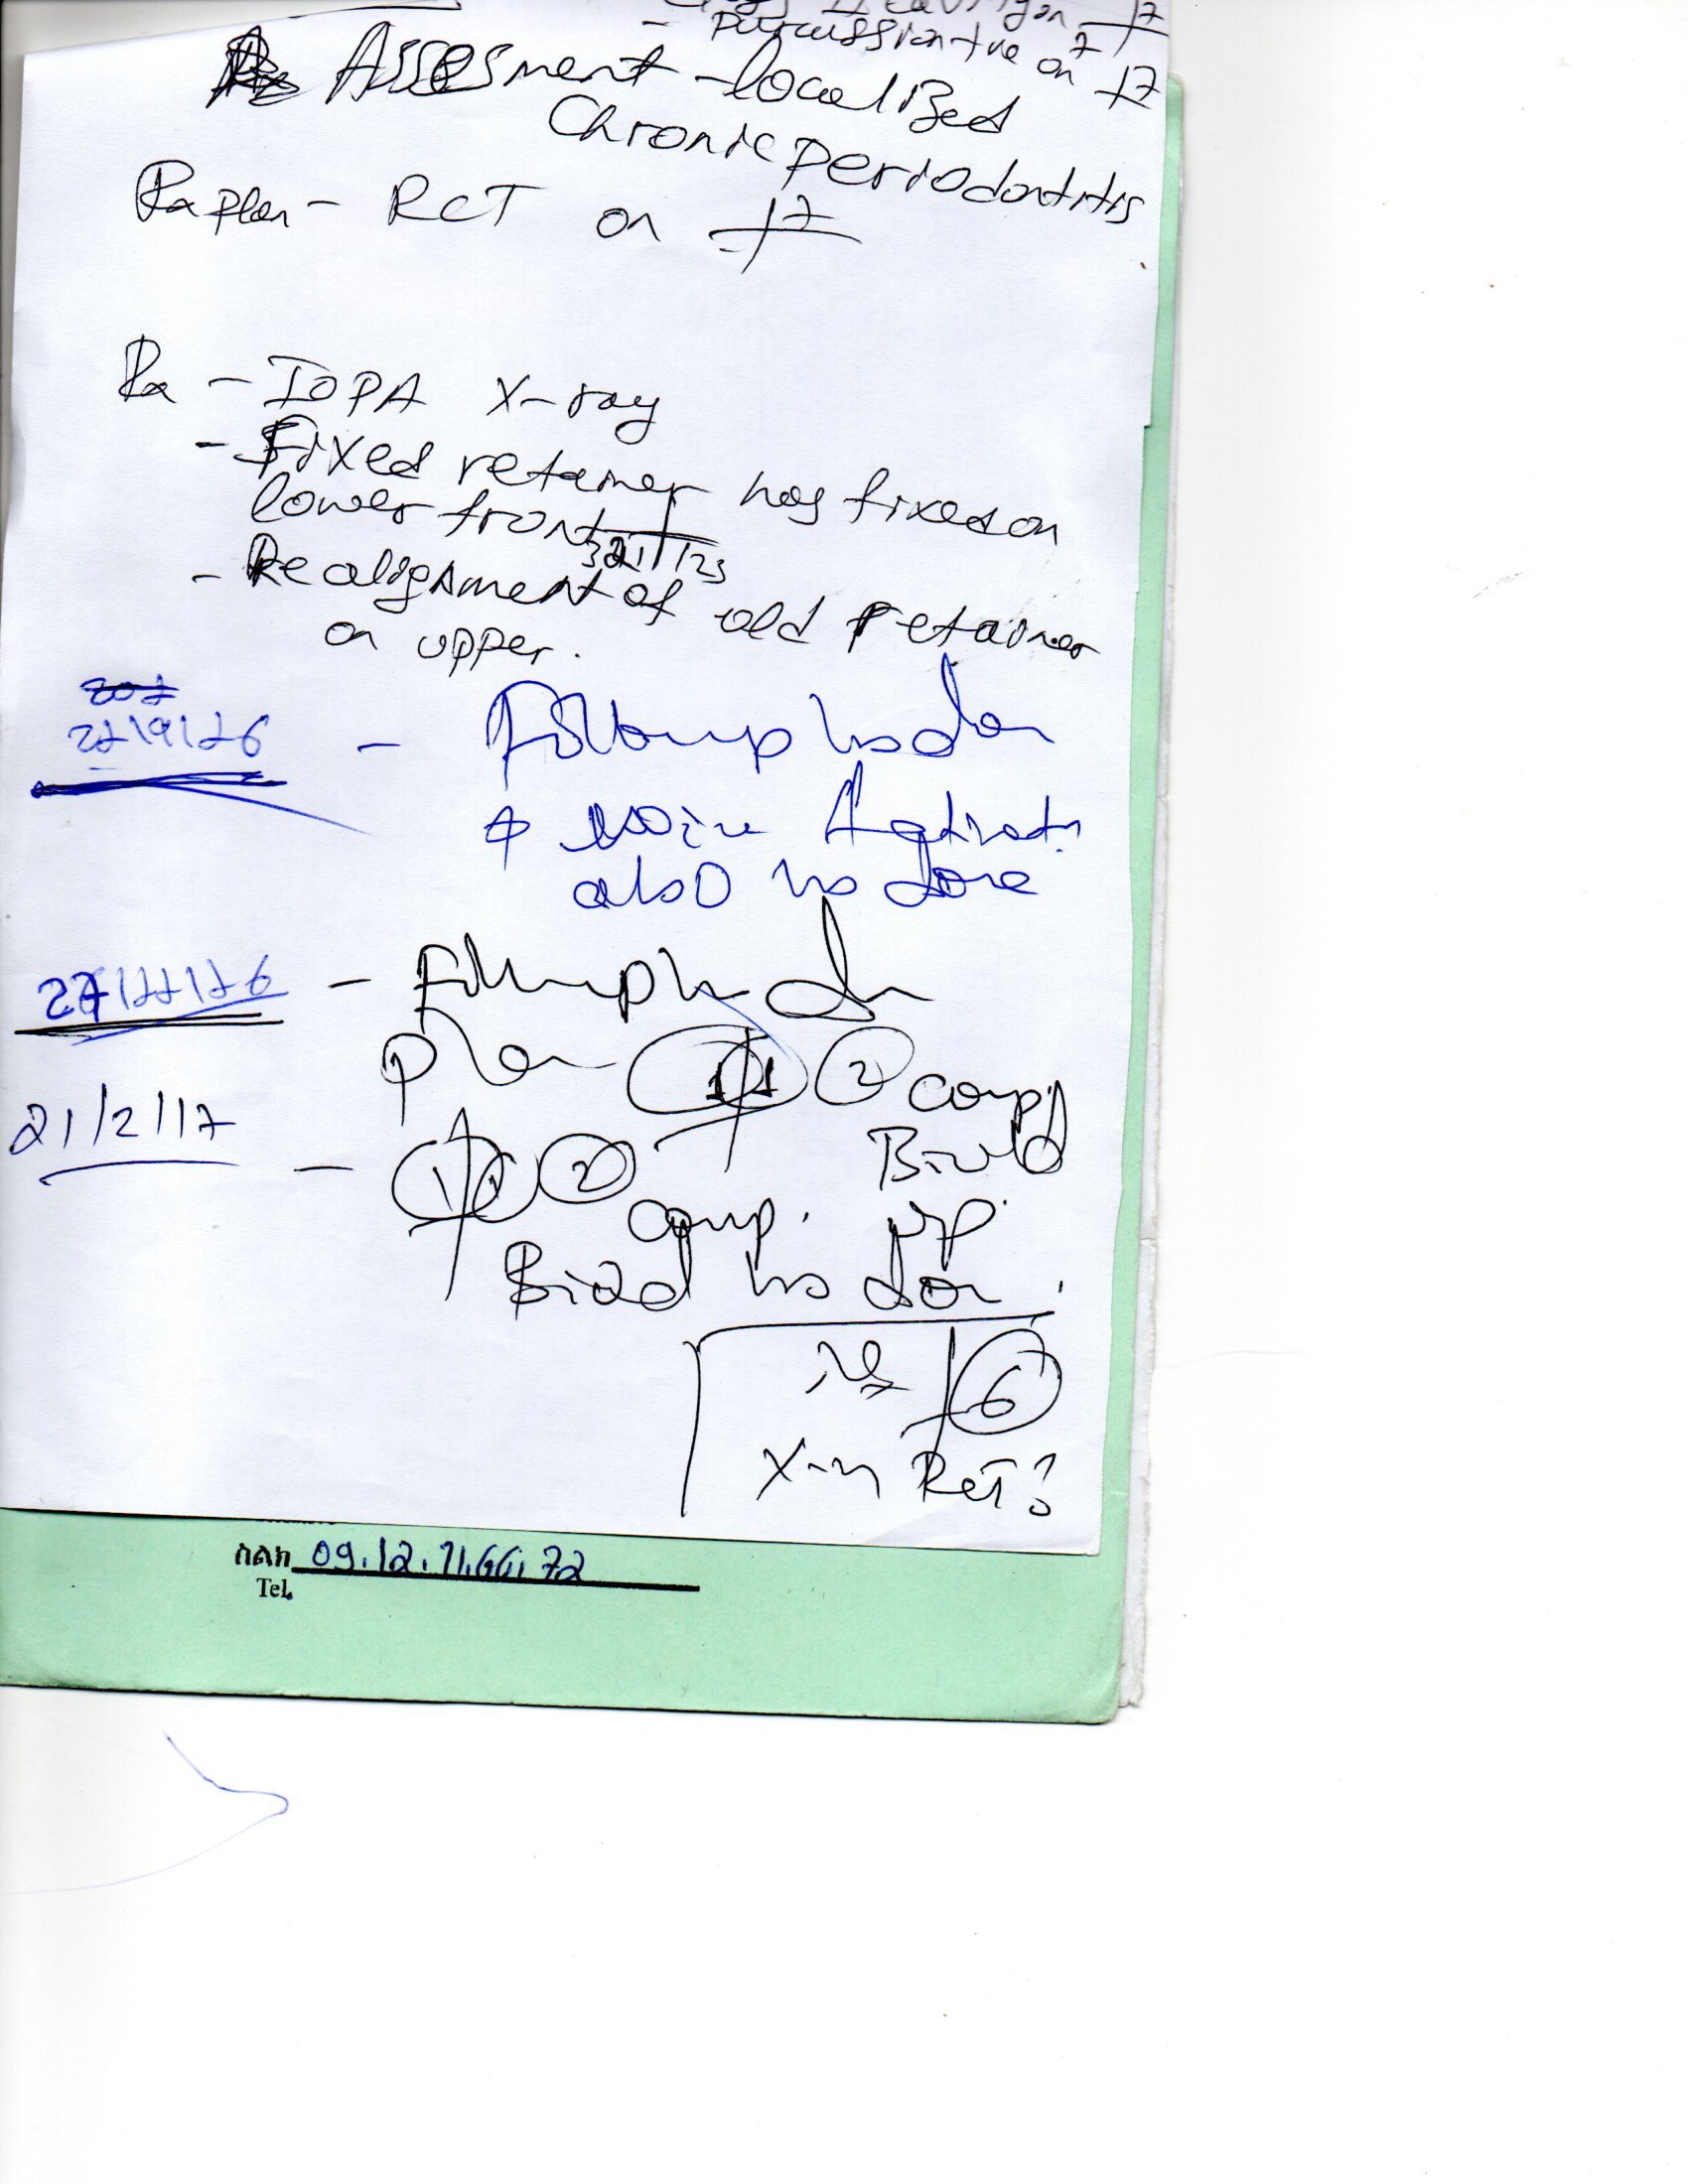 percussion +ve on 7 | 7
Assesment - localized
Chronic periodontitis
Rx plan - RCT on | 7
Rx - IOPA X-ray
- Fixed retainer has fixed on
lower front 321 | 123
- Realignment of old retainer
on upper.
- Followup has don
wire Activat.
also has done
- Followup has don
plan 1 | 1 2 comp.
Build
up.
21/2/17
- 1 | 1 2 comp.
Build has don.
Nx | 6
X-ray RCT?
ስልክ 09.12.71.66.72
Tel.